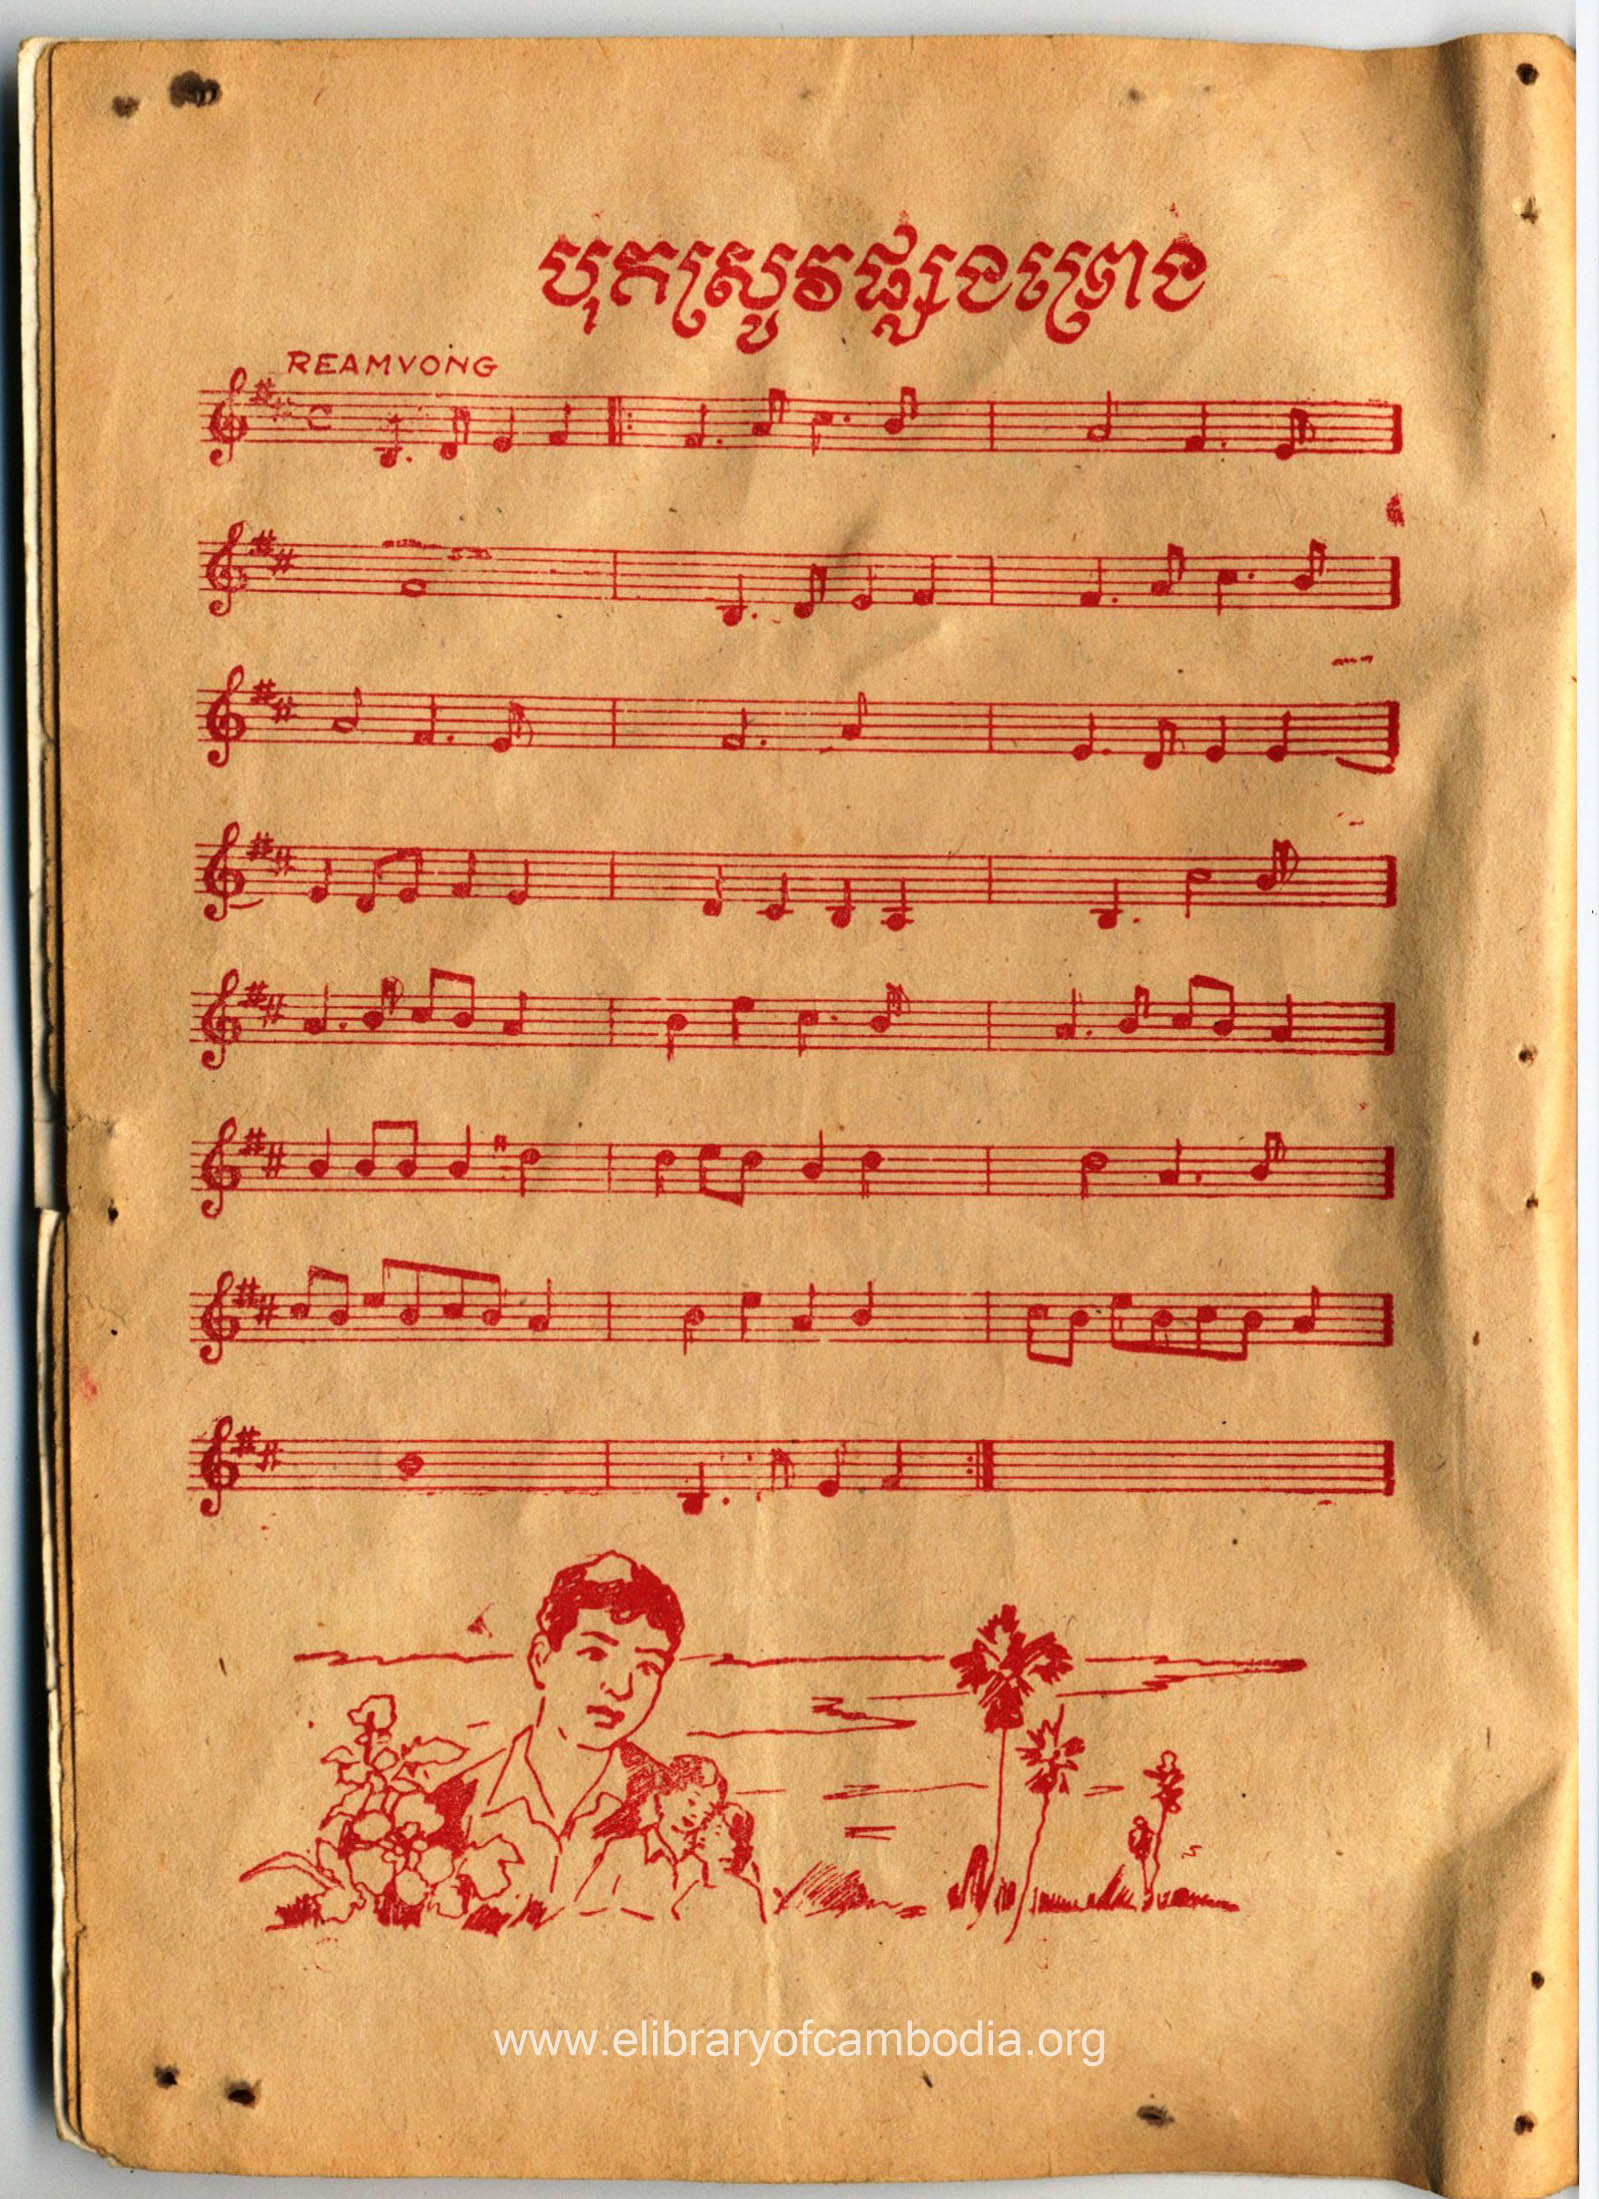 បុកស្រូវផ្សងព្រេង
REAMVONG
www.elibraryofcambodia.org